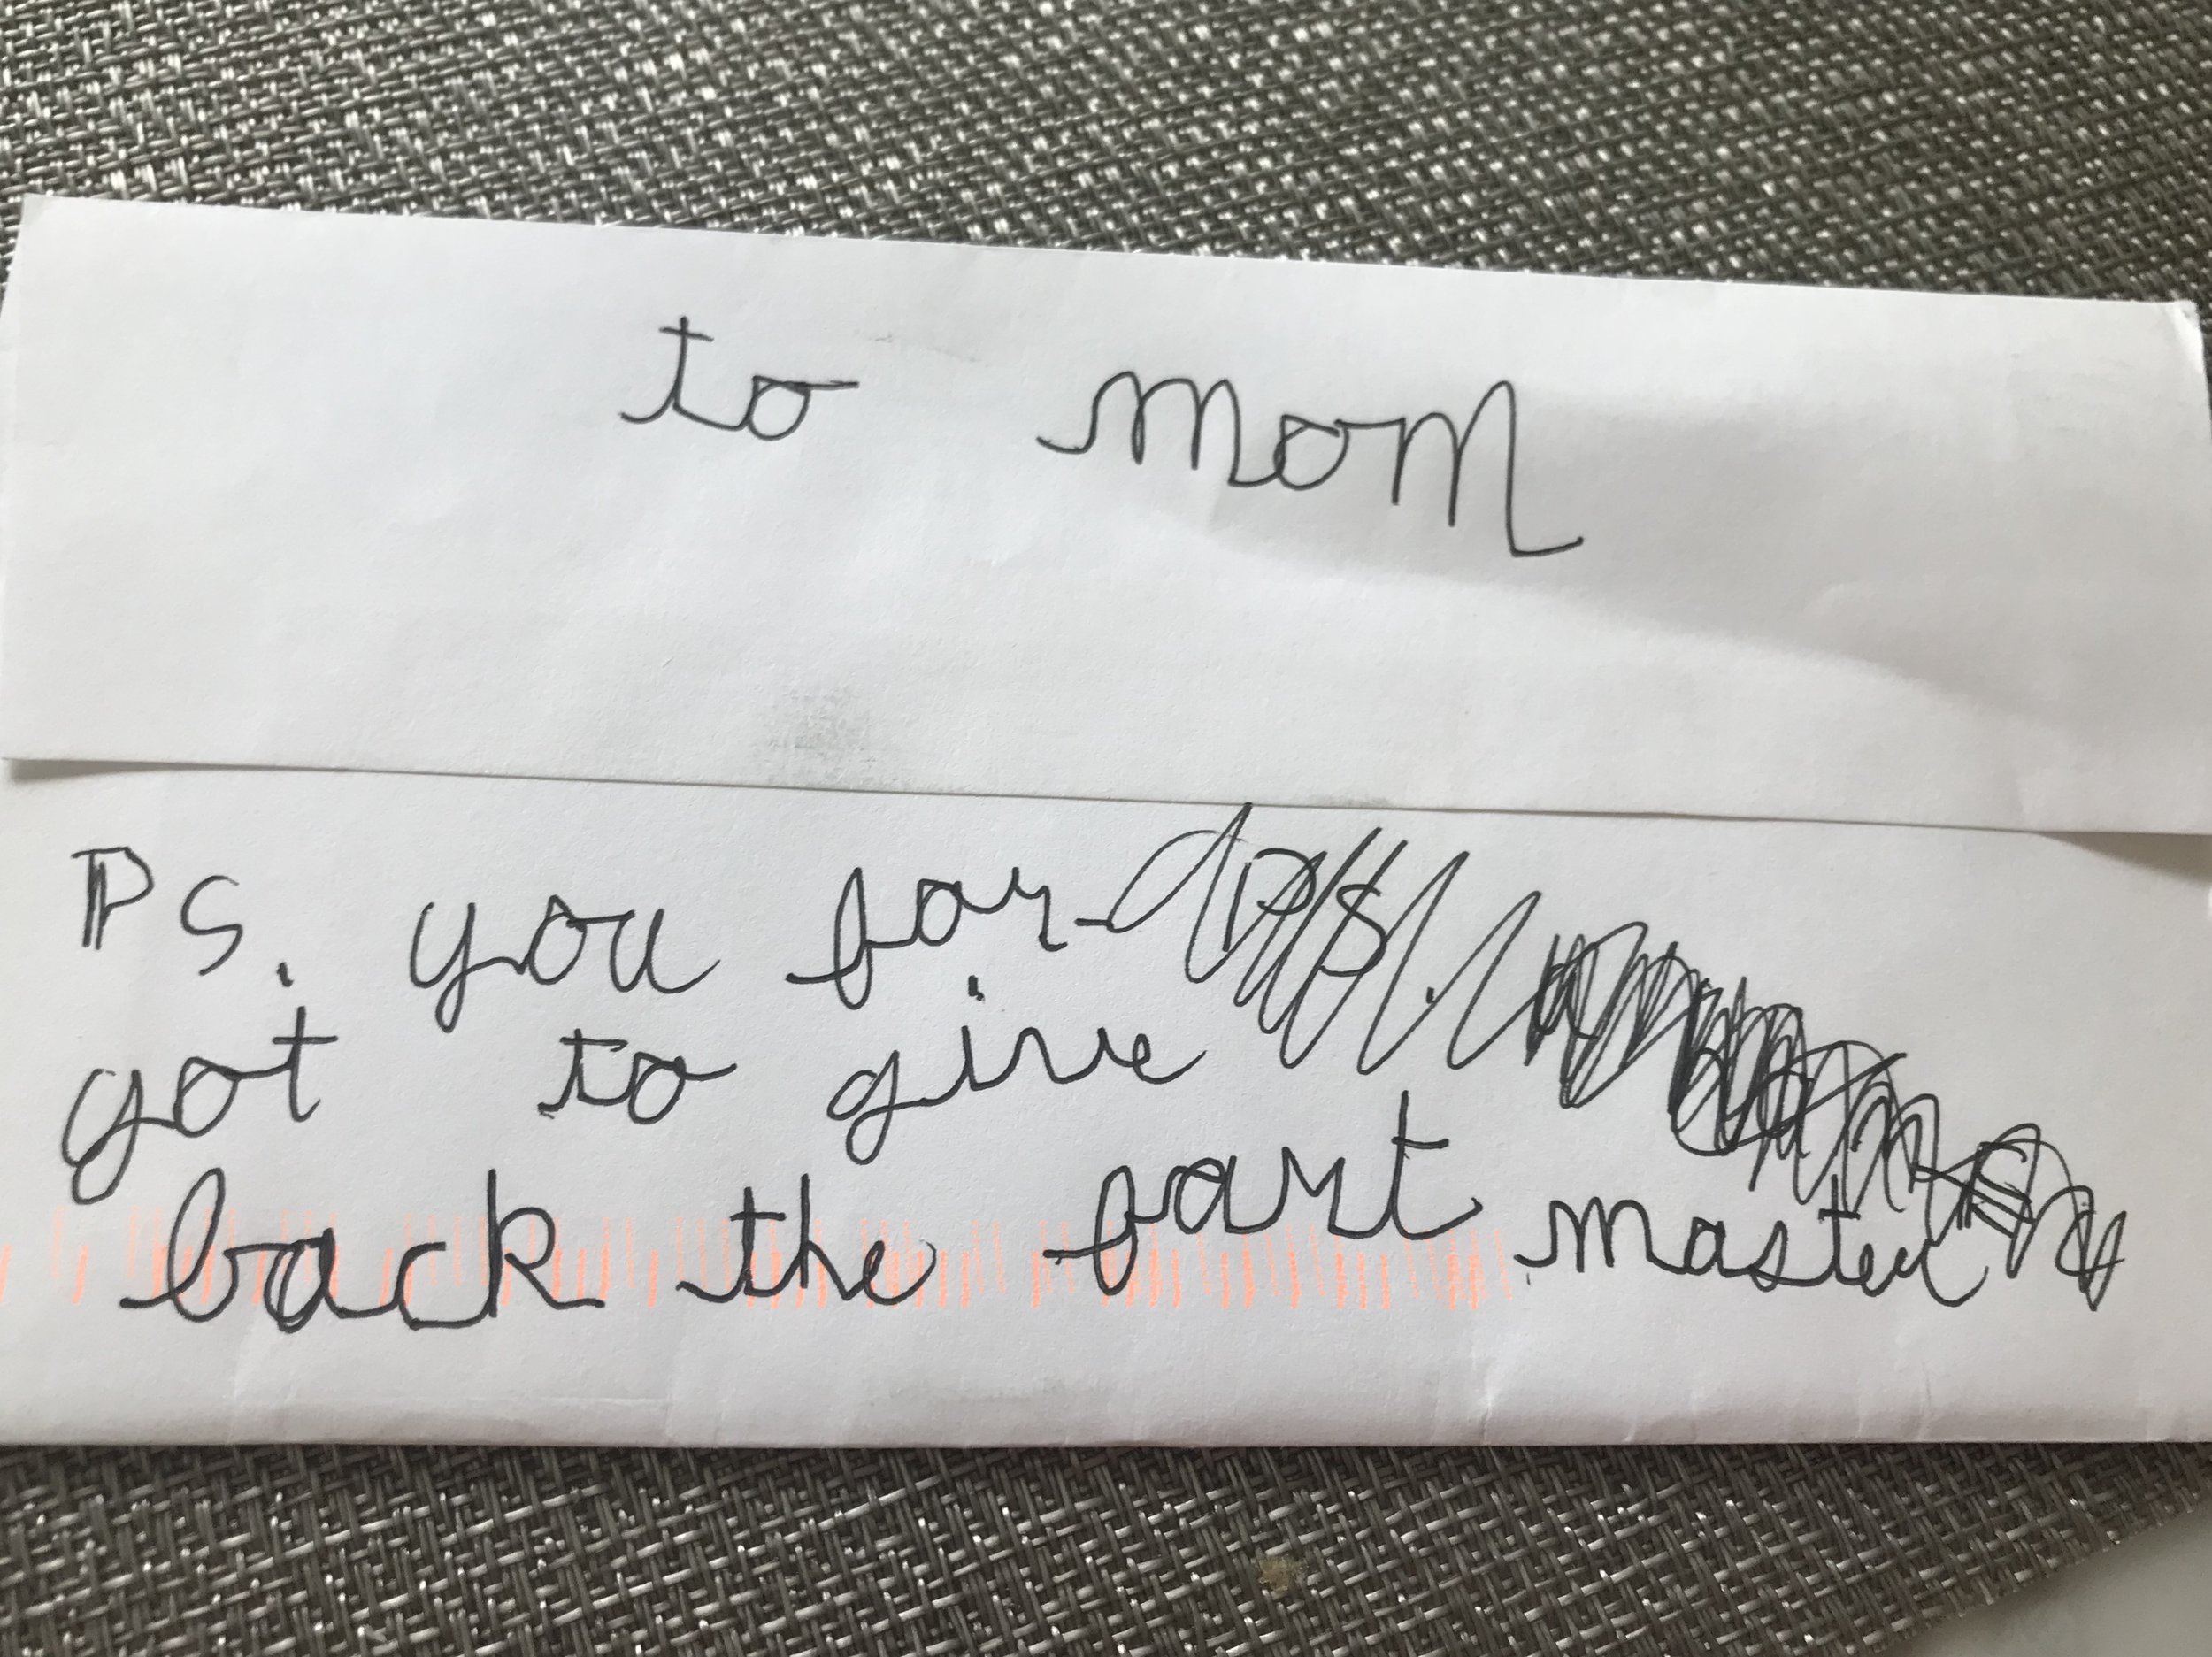 to mom
PS. you for-
got to give
back the fart master